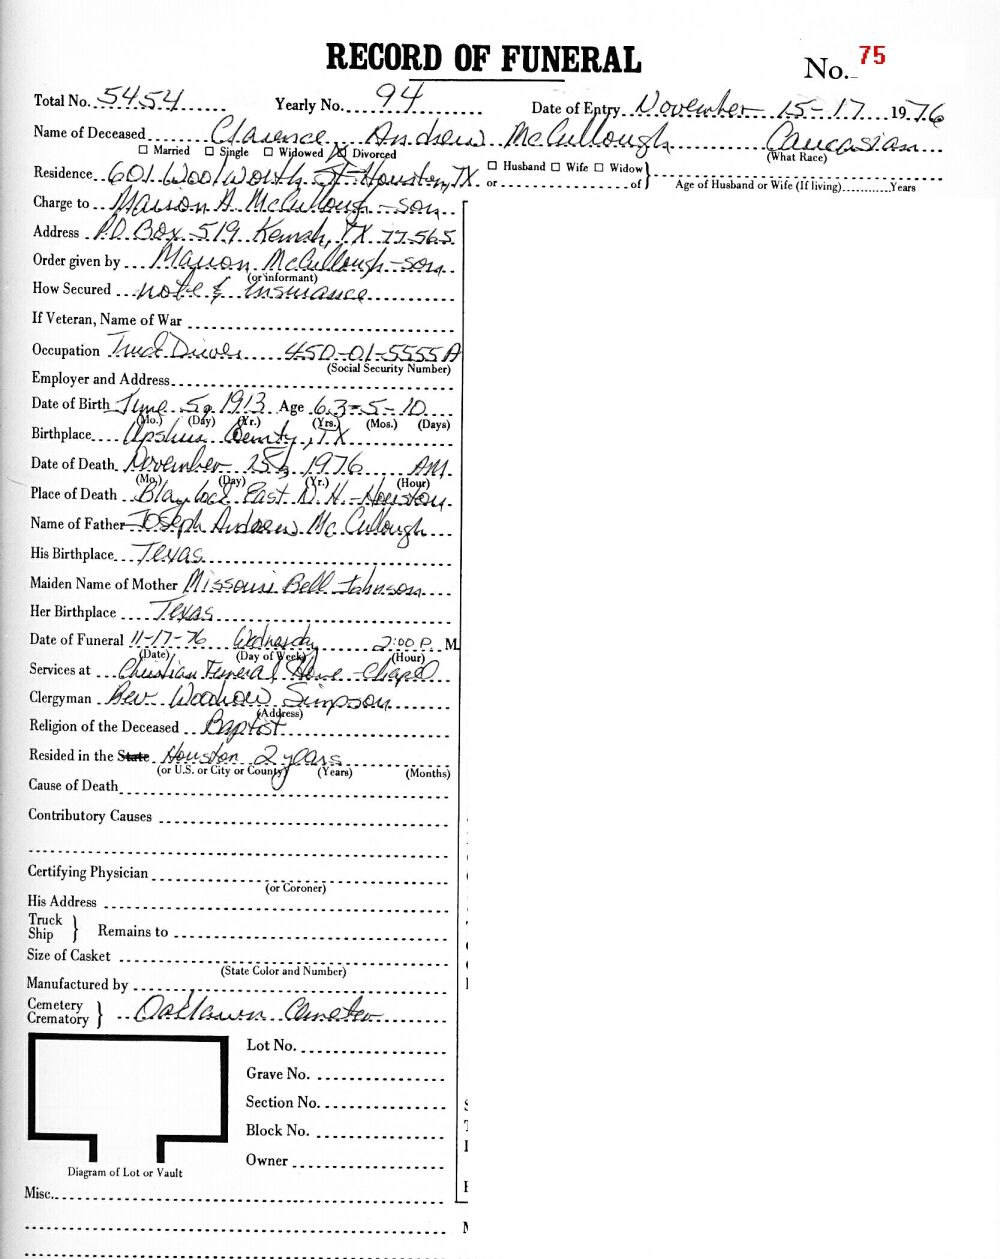 RECORD OF FUNERAL
No. 75
Total No. 5454 Yearly No. 94 Date of Entry November 15-17 1976
Name of Deceased Clarence Andrew McCullough Caucasian
☐ Married ☐ Single ☐ Widowed ☒ Divorced (What Race)
Residence 601 Woolworth St. Houston, TX ☐ Husband ☐ Wife ☐ Widow
or of Age of Husband or Wife (If living) Years
Charge to Marion A. McCullough - son
Address P.O. Box 519 Kemah, TX 77565
Order given by Marion McCullough - son
(or informant)
How Secured note & Insurance
If Veteran, Name of War
Occupation Truck Driver 450-01-5555A
(Social Security Number)
Employer and Address
Date of Birth June 5, 1913 Age 63-5-10
(Mo.) (Day) (Yr.) (Yrs.) (Mos.) (Days)
Birthplace Upshur County, TX
Date of Death November 15, 1976 AM
(Mo.) (Day) (Yr.) (Hour)
Place of Death Blaylock East N.H. - Houston
Name of Father Joseph Andrew McCullough
His Birthplace Texas
Maiden Name of Mother Missouri Bell Johnson
Her Birthplace Texas
Date of Funeral 11-17-76 Wednesday 2:00 P. M.
(Date) (Day of Week) (Hour)
Services at Christian Funeral Home - Chapel
Clergyman Rev. Woodrow Simpson
(Address)
Religion of the Deceased Baptist
Resided in the State Houston 2 years
(or U.S. or City or County) (Years) (Months)
Cause of Death
Contributory Causes
Certifying Physician
(or Coroner)
His Address
Truck
Ship } Remains to
Size of Casket
(State Color and Number)
Manufactured by
Cemetery
Crematory } Oaklawn Cemetery
Lot No.
Grave No.
Section No.
Block No.
Owner
Diagram of Lot or Vault
Misc.